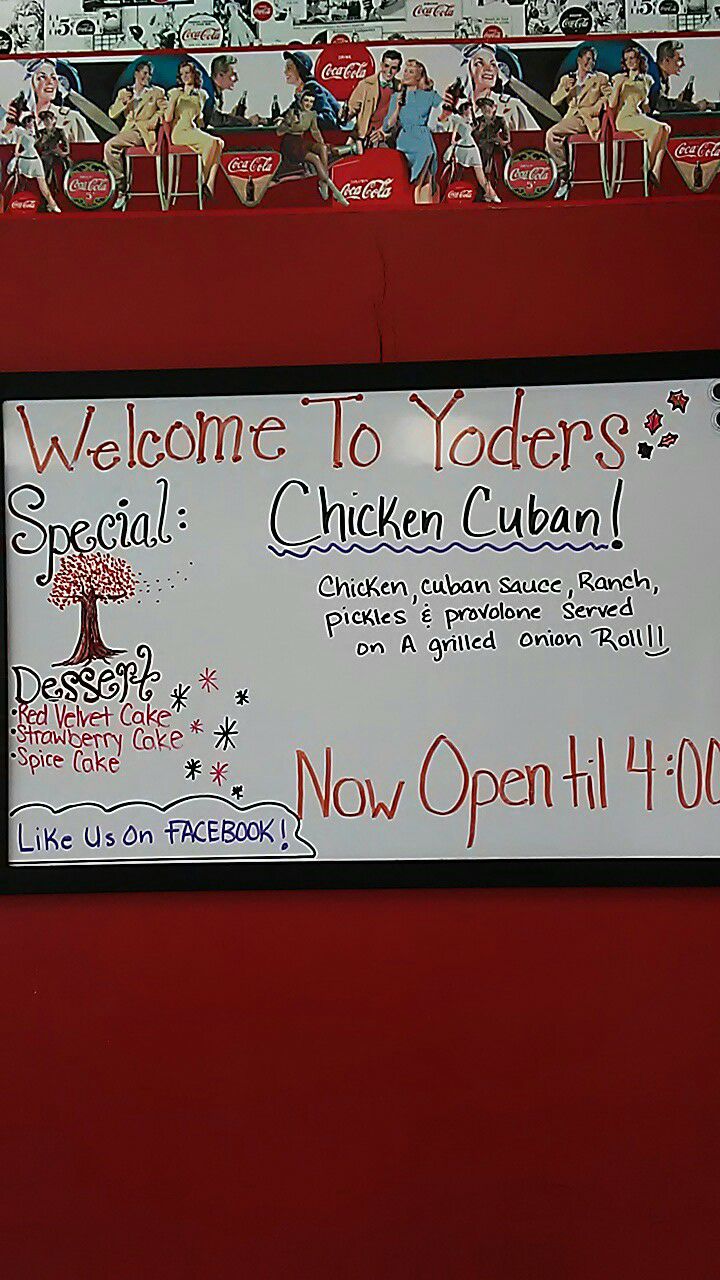 Coca-Cola
Coca-Cola
Coca-Cola
5¢
DRINK
Coca-Cola
Coca-Cola
Coca-Cola
Coca-Cola
Coca-Cola
Coca-Cola
Coca-Cola
Welcome To Yoders
Special:
Chicken Cuban!
Chicken, cuban sauce, Ranch,
pickles & provolone Served
on A grilled onion Roll!!
Dessert
•Red Velvet Cake
•Strawberry Cake
•Spice Cake
Now Open til 4:00
Like Us On FACEBOOK!